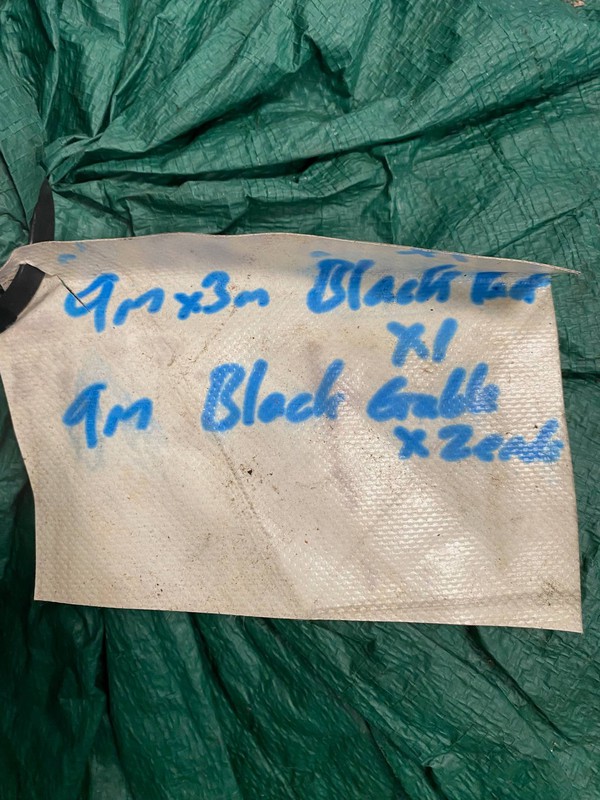 9m x3m Black Roof
x1
9m Black Gable
x 2 ends